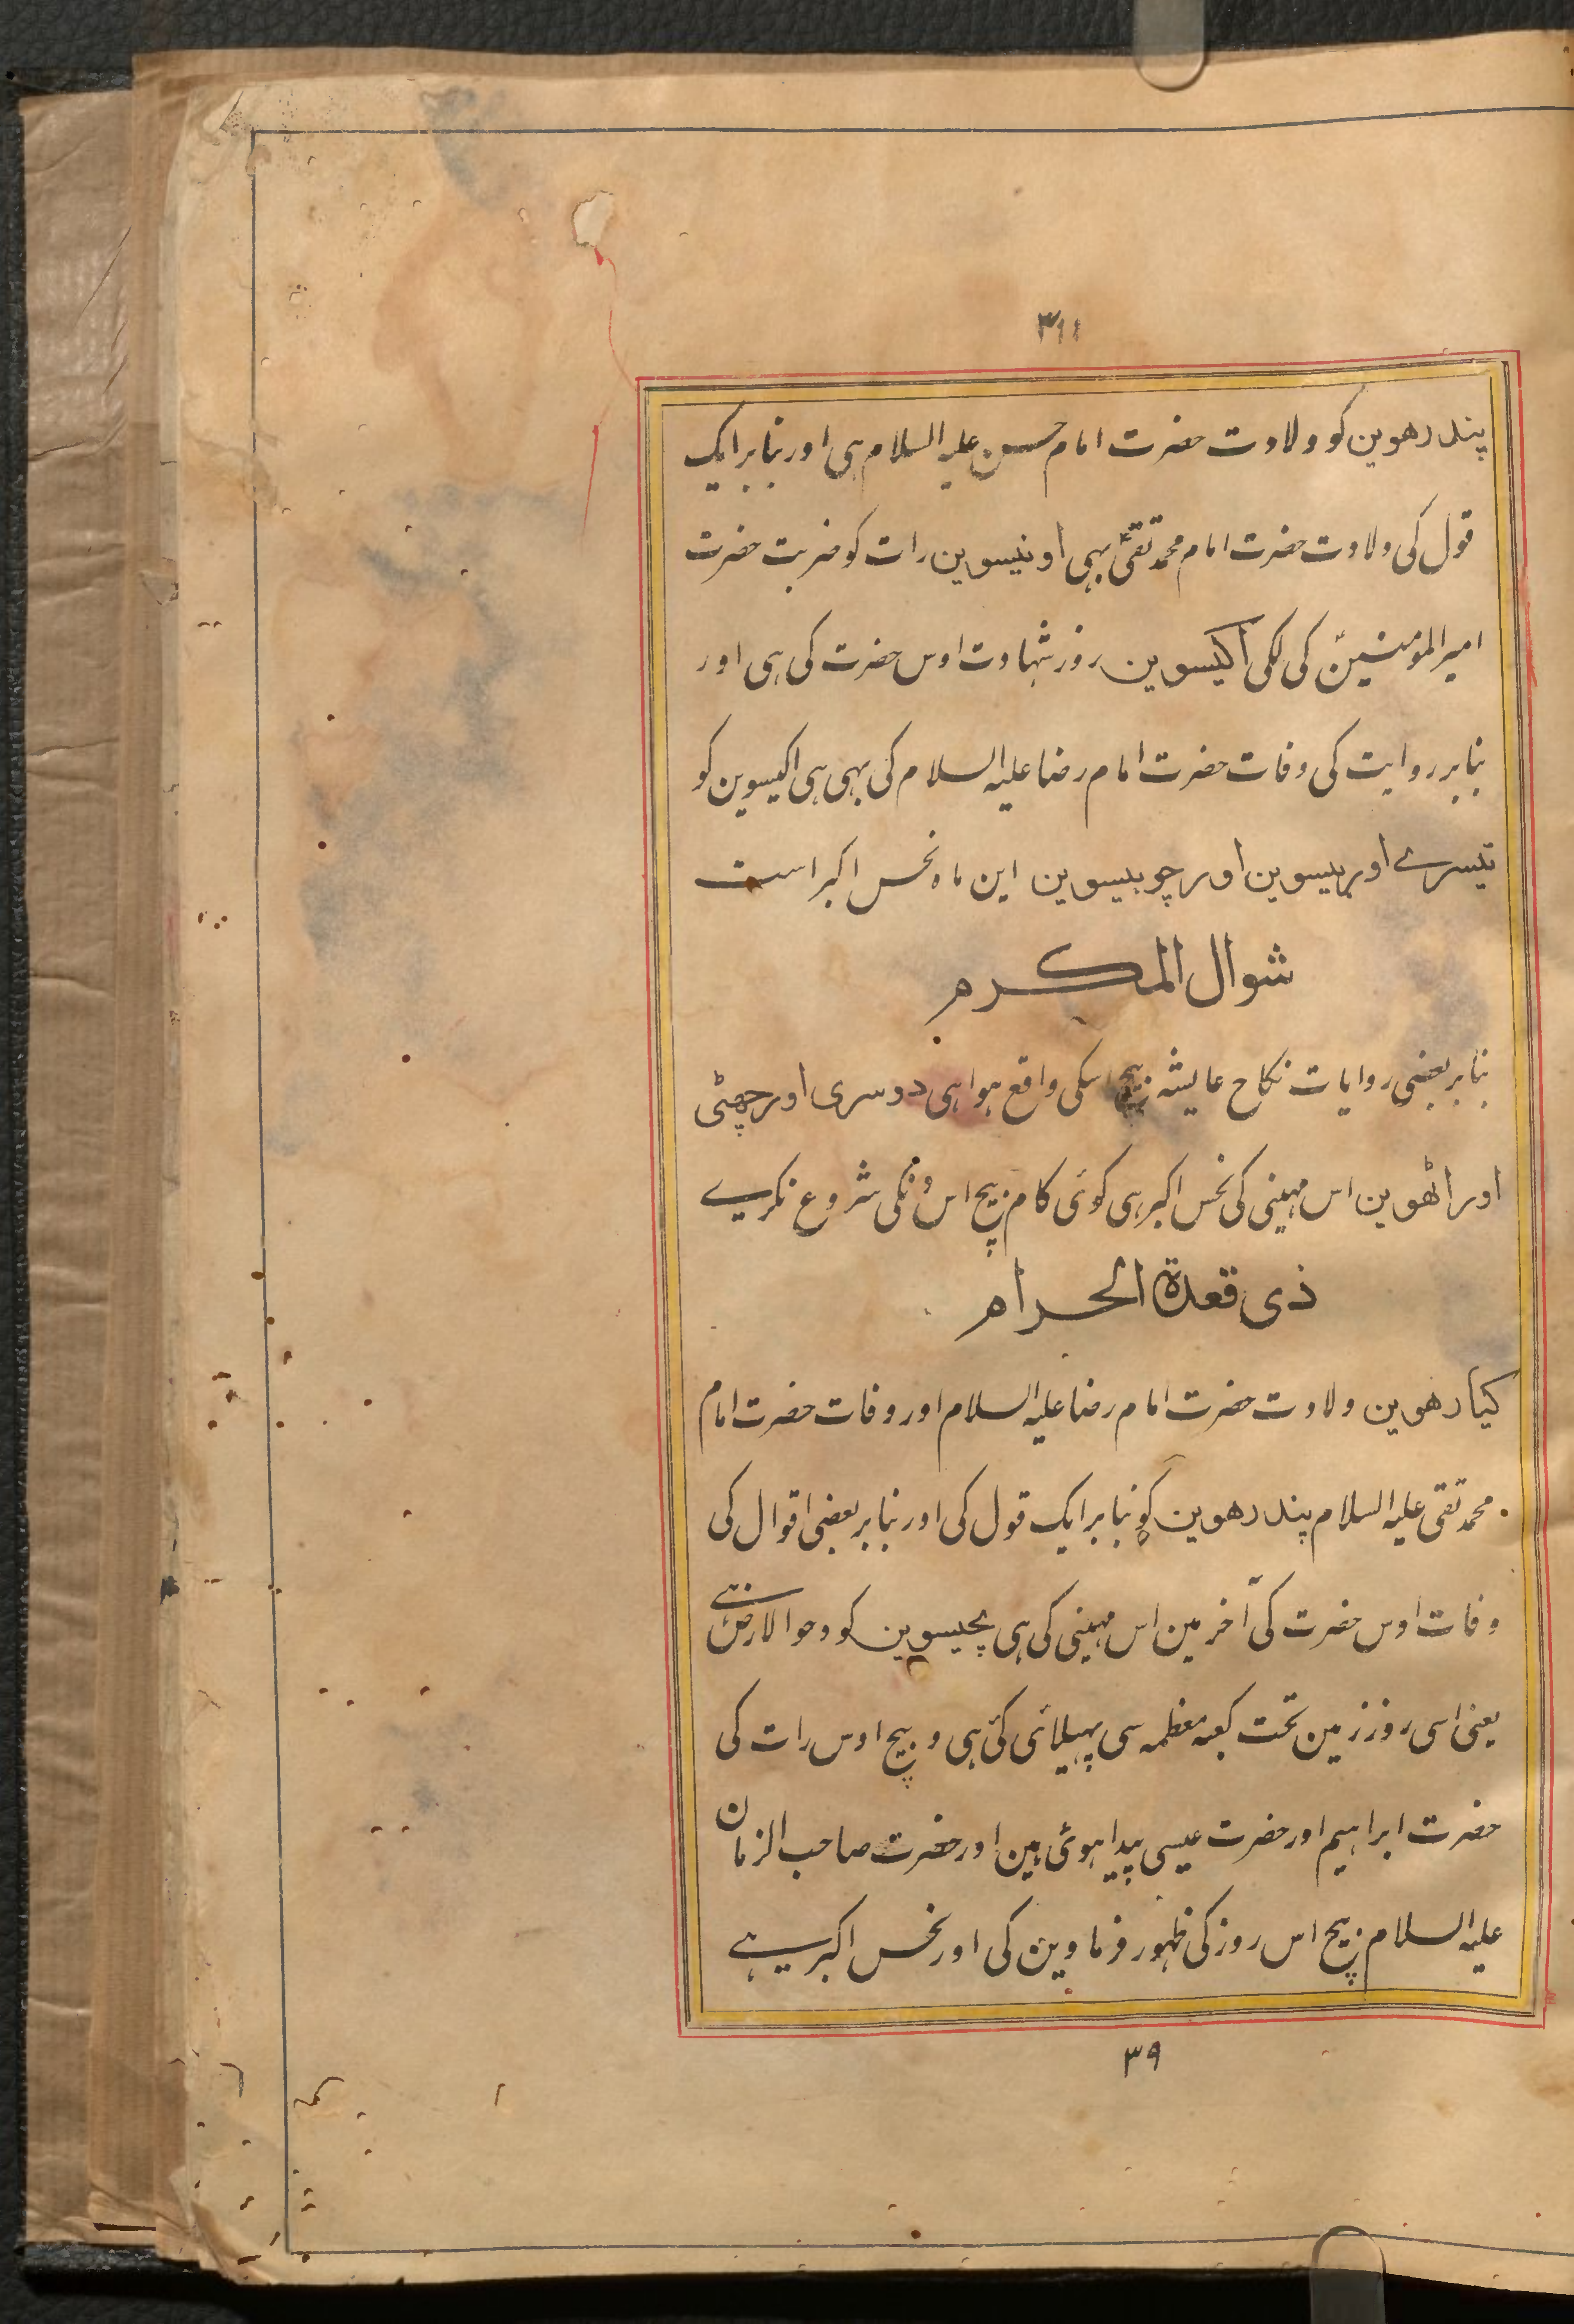 ۳۱۱
پندرھوین کو ولادت حضرت امام حسن علیہ السلام ہی اور بنا بر ایک
قول کی ولادت حضرت امام محمد تقیؑ بہی اونیسوین رات کو ضربت حضرت
امیر المومنینؑ کی لگی اکیسوین روز شہادت اوس حضرت کی ہی اور
بنا بر روایت کی وفات حضرت امام رضا علیہ السلام کی بہی ہی اکیسوین کو
تیسرے اور بیسوین اور چوبیسوین این ماہ نحس اکبر است
شوال المکرم
بنا بر بعضی روایات نکاح عایشہ بیچ اسکی واقع ہوا ہی دوسری اور چھٹی
اور اٹھوین اس مہینی کی نحس اکبر ہی کوئی کام بیچ اس دنکی شروع نکریے
ذی قعدۃ الحرام
کیارھوین ولادت حضرت امام رضا علیہ السلام اور وفات حضرت امام
محمد تقی علیہ السلام پندرھوین کو بنا بر ایک قول کی اور بنا بر بعضی اقوال کی
وفات اوس حضرت کی آخر مین اس مہینی کی ہی پچیسوین کو دحو الارض ہے
یعنی اسی روز زمین تحت کعبہ معظمہ سی پہیلائی گئی ہی و بیچ اوس رات کی
حضرت ابراہیم اور حضرت عیسی پیدا ہوئی ہین اور حضرت صاحب الزمان
علیہ السلام بیچ اس روز کی ظہور فرماوین کی اور نحس اکبر ہے
۳۹